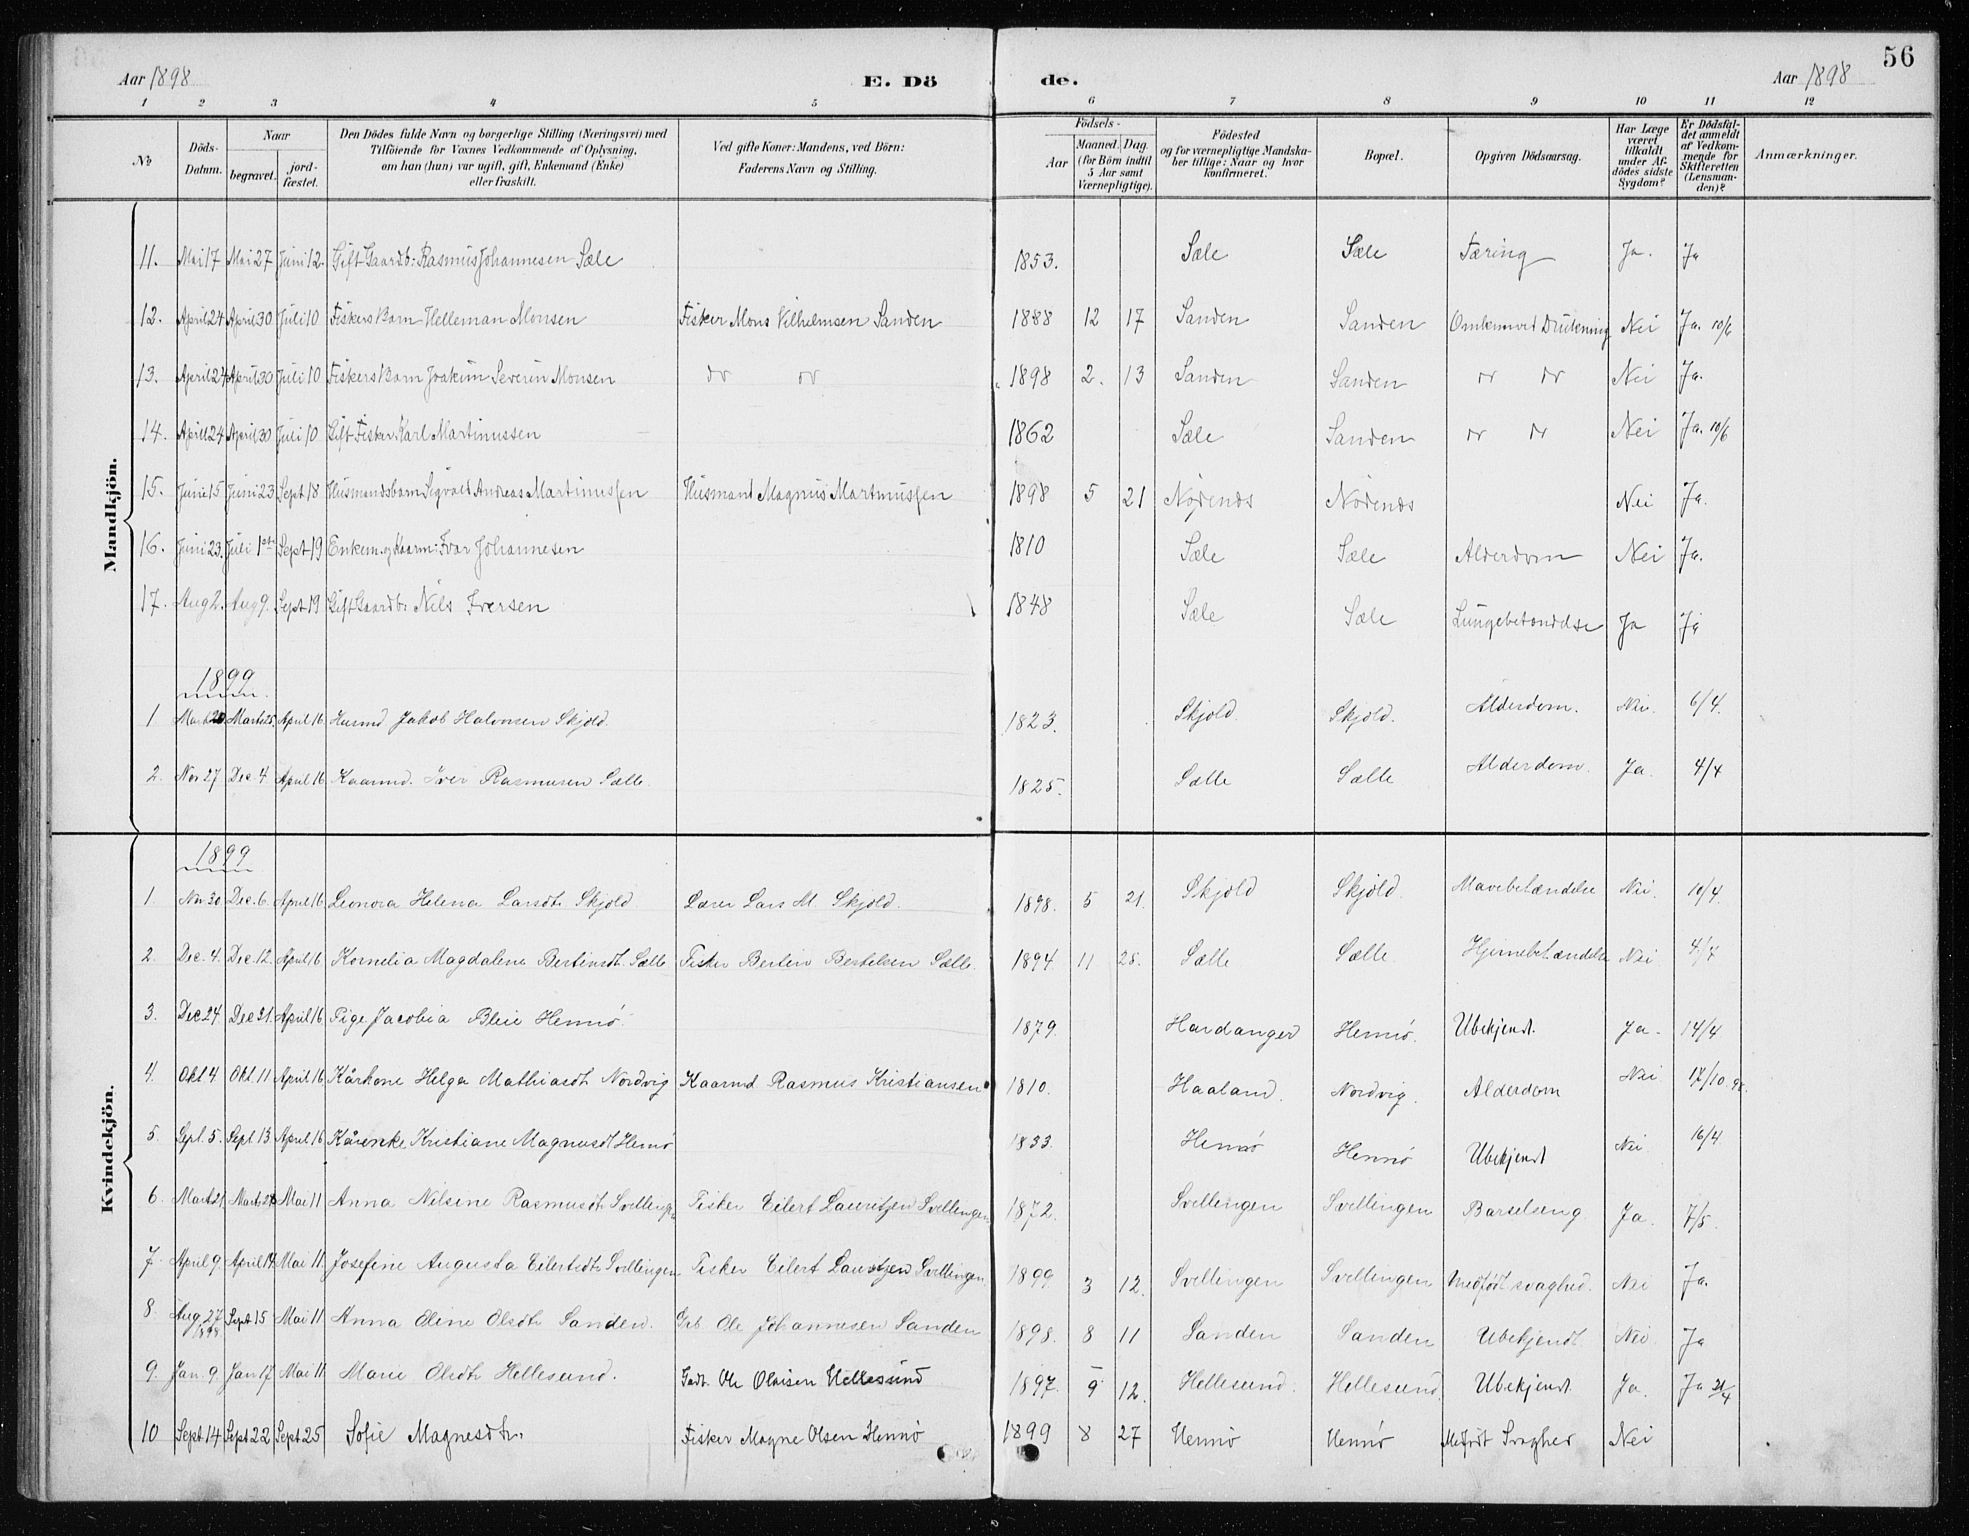 56
Aar 1898 E. Dö de. Aar 1898
1 2 3 4 5 6 7 8 9 10 11 12
No
Döds-Datum.
Naar
begravet.
jord-fæstet.
Den Dödes fulde Navn og borgerlige Stilling (Næringsvei) med
Tilföiende for Voxnes Vedkommende af Oplysning,
om han (hun) var ugift, gift, Enkemand (Enke)
eller fraskilt.
Ved gifte Koner: Mandens, ved Börn:
Faderens Navn og Stilling.
Födsels-
Aar
Maaned. Dag.
(for Börn indtil
5 Aar samt
Værnepligtige).
Födested
og for værnepligtige Mandska-
ber tillige: Naar og hvor
konfirmeret.
Bopæl.
Opgiven Dödsaarsag.
Har Læge
været
tilkaldt
under Af-
dödes sidste
Sygdom?
Er Dödsfal-
det anmeldt
af Vedkom-
mende for
Skifteretten
(Lensman-
den)?
Anmærkninger.
Mandkjön.
11. Mai 17 Mai 27 Juni 12. Gift Gaardb: Rasmus Johannesen Sæle 1853. Sæle Sæle Tæring Ja. Ja
12. April 24 April 30 Juli 10 Fiskers Barn Helleman Monsen Fisker Mons Vilhelmsen Sanden 1888 12 17 Sanden Sanden Omkom ved Drukning Nei Ja. 10/6
13. April 24 April 30 Juli 10 Fiskers Barn Joakim Severin Monsen do do 1898 2. 13 Sanden Sanden do do Nei Ja.
14. April 24 April 30 Juli 10 Gift Fisker Karl Martinussen 1862 Sæle Sanden do do Nei Ja. 10/6
15. Juni 15 Juni 23 Sept 18 Husmandsbarn Sigvald Andreas Martinussen Husmand Magnus Martinussen 1898 5 21 Nödenæs Nödenæs Nei Ja.
16. Juni 23. Juli 1ste Sept 19 Enkem. og Kaarm: Ivar Johannesen 1810 Sæle Sæle Alderdom Nei Ja.
17. Aug 2. Aug 9. Sept 19 Gift Gaardbr Nils Iversen 1848 Sæle Sæle Lungebetændelse Ja Ja
1899
1 Marts Marts 25. April 16. Husmd Jakob Halvorsen Skjold. 1823. Skjold. Skjold. Alderdom. Nei. 6/4.
2. Nov 27 Dec. 4 April 16 Kaarmd. Iver Rasmusen Sælle. 1825. Sælle Sælle Alderdom. Ja. 4/4
Kvindekjön.
1899
1. Nov 30 Dec. 6. April 16 Leonora Helena Larsdtr Skjold Lærer Lars M. Skjold. 1898. 5 21. Skjold Skjold. Mavebetændelse Nei. 10/4.
2. Dec. 4. Dec. 12. April 16 Kornelia Magdalene Bertinsdt. Sælle Fisker Bertin Bertelsen Sælle. 1894. 11 28. Sælle Sælle Hjernebetændelse Nei 4/4
3. Dec 24 Dec 31. April 16 Pige Jacobia Bleie Hennö. 1879. Hardanger Hennö. Ubekjendt. Ja. 14/4
4. Okt 4 Okt. 11 April 16 Kårkone Helga Mathiasdt Nordvig Kaarmd Rasmus Kristiansen 1810. Haaland. Nordvig. Alderdom Nei 17/10 98.
5. Sept. 5. Sept 13 April 16 Kårenke Kristiane Magnusdt. Hennö 1833. Hennö Hennö Ubekjendt Nei 16/4.
6. Marts 21 Marts 28 Mai 11 Anna Nilsine Rasmusdt Svellingen Fisker Eilert Lauritzen Svellingen 1872. Svellingen Svellingen Barselseng Ja. 7/5.
7. April 9. April 14. Mai 11. Josefine Augusta Eilertsdtr Svellingen Fisker Eilert Lauritzen Svellingen. 1899 3 12. Svellingen Svellingen Medfödt svaghed. Nei Ja.
8. Aug. 27 1898. Sept 15 Mai 11. Anna Oline Olsdtr Sanden. Grb Ole Johannesen Sanden 1898. 8 11 Sanden Sanden Ubekjendt Nei. Ja
9. Jan. 9. Jan 17 Mai 11 Marie Olsdtr Hellesund. Gadb. Ole Olaisen Hellesund 1897. 9 12. Hellesund. Hellesund. Ubekjendt. Ja. Ja 21/4
10 Sept. 14 Sept 22 Sept 25 Sofie Magnesdtr. Fisker Magne Olsen Hennö 1899 8 27 Hennö Hennö Mefödt Svaghed Nei